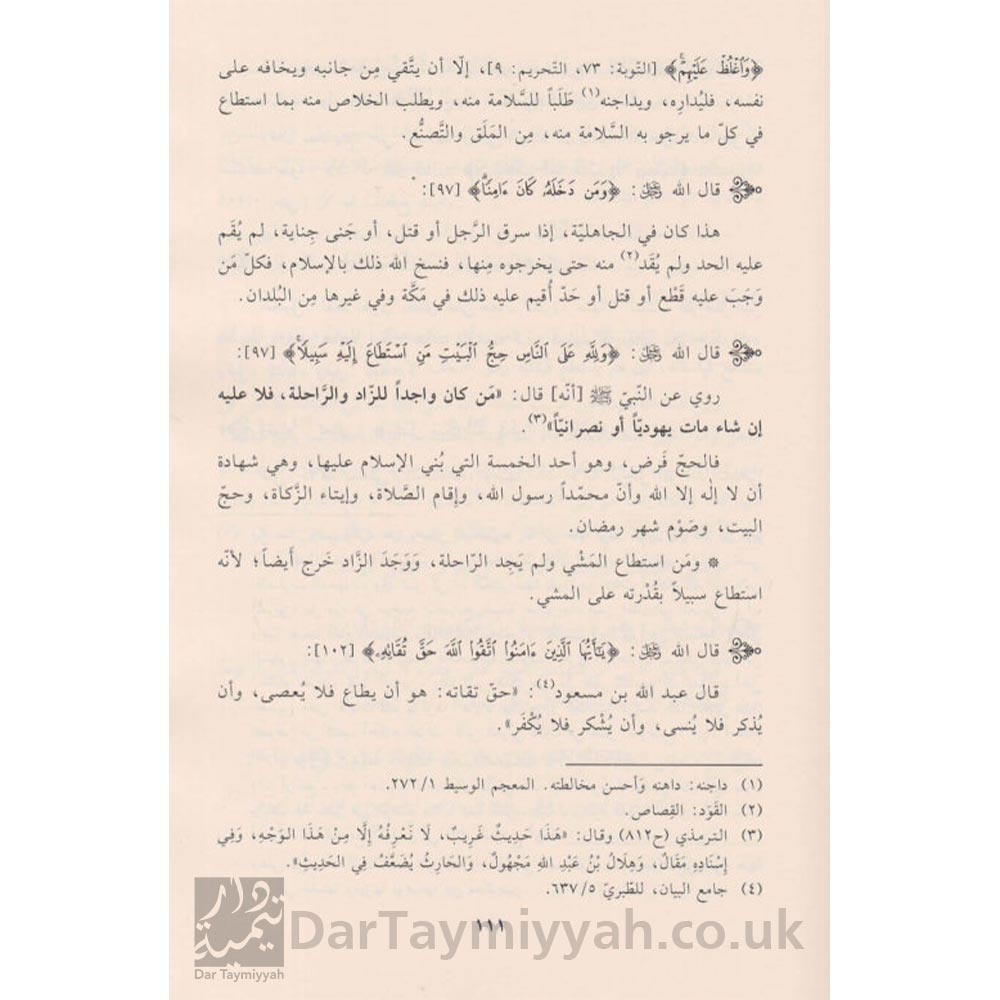 ﴿وَٱغْلُظْ عَلَيْهِمْۚ﴾ [التّوبة: ٧٣، التّحريم: ٩]، إلّا أن يتَّقي مِن جانبه ويخافه على
نفسه، فليُدارِه، ويداجنه(١) طَلَباً للسَّلامة منه، ويطلب الخلاص منه بما استطاع
في كلّ ما يرجو به السَّلامة منه، مِن المَلَق والتَّصنُّع.
قال الله ﷻ: ﴿وَمَن دَخَلَهُۥ كَانَ ءَامِنٗاۗ﴾ [٩٧]:
هذا كان في الجاهليّة، إذا سرق الرَّجل أو قتل، أو جَنى جِناية، لم يُقَم
عليه الحد ولم يُقَد(٢) منه حتى يخرجوه مِنها، فنسخ الله ذلك بالإسلام، فكلّ مَن
وَجَبَ عليه قَطْع أو قتل أو حَدّ أُقيم عليه ذلك في مَكَّة وفي غيرها مِن البُلدان.
قال الله ﷻ: ﴿وَلِلَّهِ عَلَى ٱلنَّاسِ حِجُّ ٱلْبَيْتِ مَنِ ٱسْتَطَاعَ إِلَيْهِ سَبِيلٗاۚ﴾ [٩٧]:
روي عن النَّبيّ ﷺ [أنّه] قال: «مَن كان واجداً للزّاد والرَّاحلة، فلا عليه
إن شاء مات يهوديّاً أو نصرانيّاً»(٣).
فالحجّ فَرض، وهو أحد الخمسة التي بُني الإسلام عليها، وهي شهادة
أن لا إلٰه إلا الله وأنّ محمّداً رسول الله، وإقام الصَّلاة، وإيتاء الزَّكاة، وحجّ
البيت، وصَوْم شهر رمضان.
* ومَن استطاع المَشْي ولم يَجِد الرّاحلة، وَوَجَدَ الزَّاد خَرج أَيضاً؛ لأنّه
استطاع سبيلاً بقُدْرته على المشي.
قال الله ﷻ: ﴿يَٰٓأَيُّهَا ٱلَّذِينَ ءَامَنُوا۟ ٱتَّقُوا۟ ٱللَّهَ حَقَّ تُقَاتِهِۦ﴾ [١٠٢]:
قال عبد الله بن مسعود(٤): «حقّ تقاته: هو أن يطاع فلا يُعصى، وأن
يُذكر فلا يُنسى، وأن يُشْكر فلا يُكْفَر».
(١) داجنه: داهنه وَأحسن مخالطته. المعجم الوسيط ٢٧٢/١.
(٢) القَوَد: القِصاص.
(٣) الترمذي (ح٨١٢) وقال: «هَذَا حَدِيثٌ غَرِيبٌ، لَا نَعْرِفُهُ إِلَّا مِنْ هَذَا الوَجْهِ، وَفِي
إِسْنَادِهِ مَقَالٌ، وَهِلَالُ بْنُ عَبْدِ اللهِ مَجْهُولٌ، وَالحَارِثُ يُضَعَّفُ فِي الحَدِيثِ».
(٤) جامع البيان، للطّبريّ ٦٣٧/٥.
١١١
DarTaymiyyah.co.uk
دار تيمية
Dar Taymiyyah